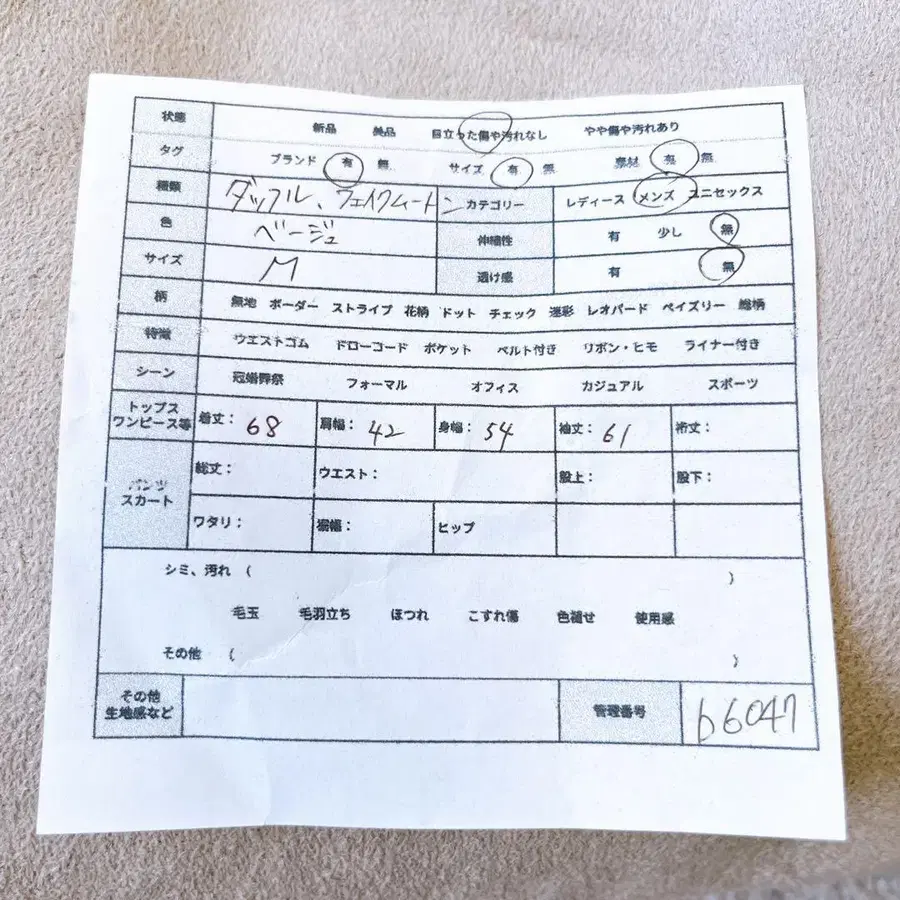 状態 新品 美品 目立った傷や汚れなし やや傷や汚れあり
タグ ブランド 有 無 サイズ 有 無 素材 有 無
種類 ダッフル、フェイクムートン カテゴリー レディース メンズ ユニセックス
色 ベージュ 伸縮性 有 少し 無
サイズ M 透け感 有 無
柄 無地 ボーダー ストライプ 花柄 ドット チェック 迷彩 レオパード ペイズリー 総柄
特徴 ウエストゴム ドローコード ポケット ベルト付き リボン・ヒモ ライナー付き
シーン 冠婚葬祭 フォーマル オフィス カジュアル スポーツ
トップス
ワンピース等 着丈： 68 肩幅： 42 身幅： 54 袖丈： 61 裄丈：
パンツ
スカート 総丈： ウエスト： 股上： 股下：
ワタリ： 裾幅： ヒップ
シミ、汚れ （ ）
毛玉 毛羽立ち ほつれ こすれ傷 色褪せ 使用感
その他 （ ）
その他
生地感など 管理番号 b6047